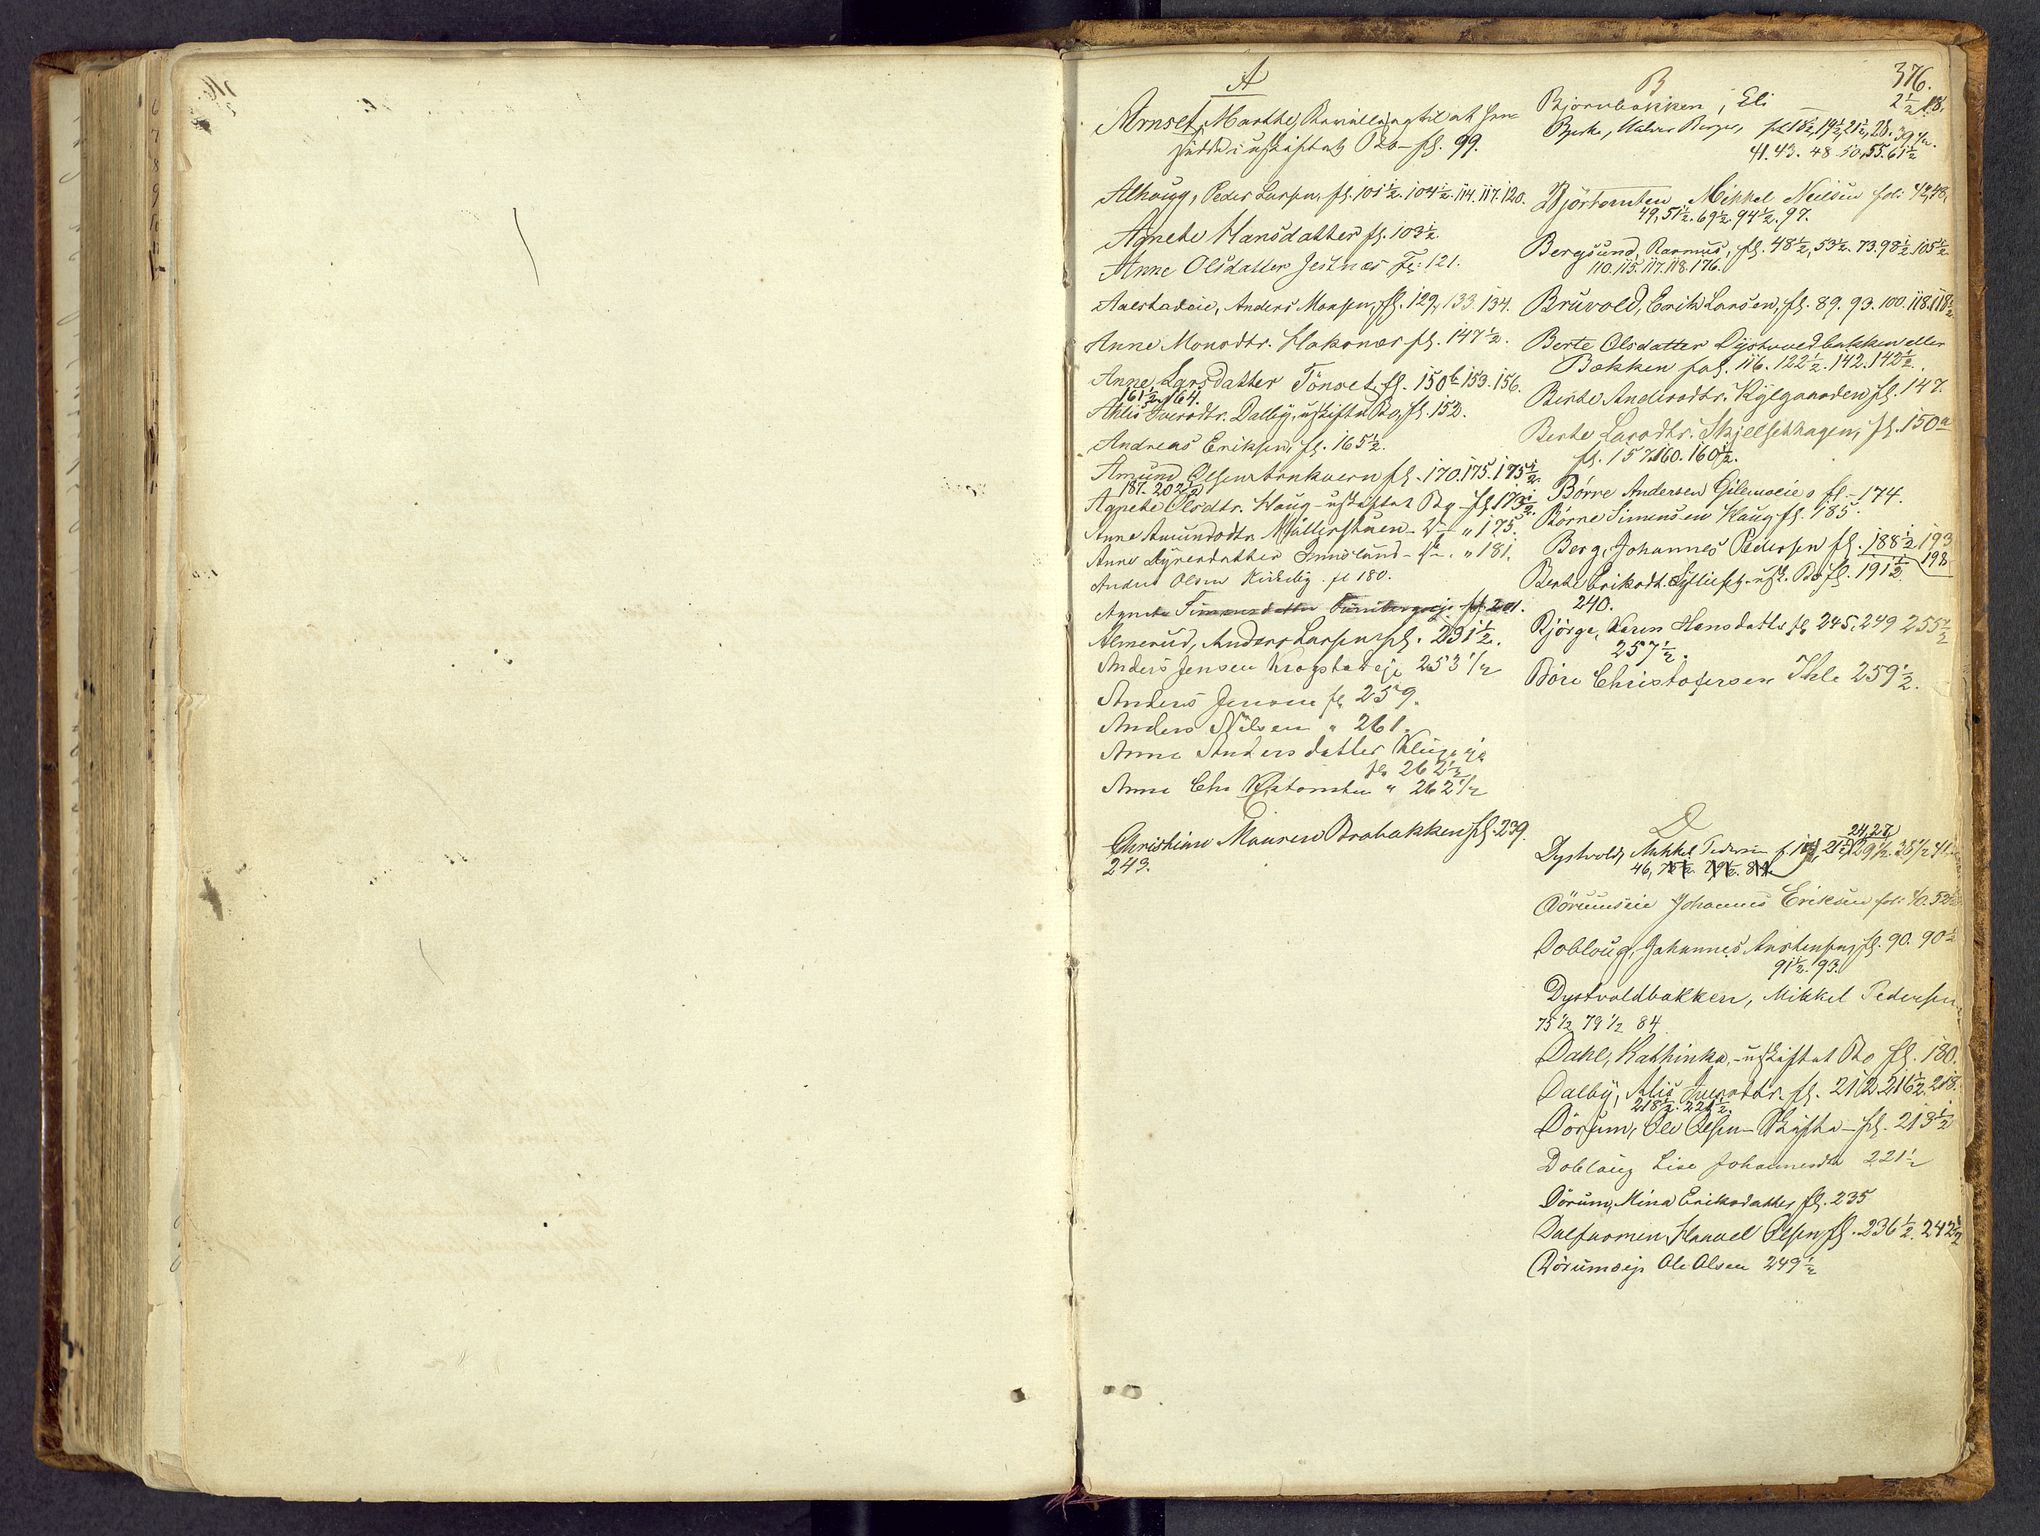 376.
A
Arnset, Marthe, Bevilling til at hen-
sidde i uskiftet Bo – fl. 99.
Alhaug, Peder Larsen, fl. 101½. 104½. 114. 117. 120.
Agnete Hansdatter fl. 103½.
Anne Olsdatter Jestnæs Fl: 121.
Aalstadeie, Anders Monsen, fl. 129, 133. 134.
Anne Monsdtr. Hakanæs fl. 147½.
Anne Larsdatter Tönset, fl. 150b 153. 156.
161½ 164.
Ahlis Iversdtr. Dalby, uskifte Bo, fl. 152.
Andreas Eriksen, fl. 165½.
Amund Olsen fl. 170. 175. 175½
187. 202½
Agnete Olsdtr. Haug – uskiftet Bo – fl. 173½.
Anne Amundsdtr. Müllerstuen – " 175.
Anne – " 181.
Andreas Olsen Kirkeby. fl 180.
Agnete Simensdatter Furubergeje fl. 201.
Almerud, Anders Larsen fl. 231½.
Anders Jensen Krogstadeje 253½
Anders Jensen fl 259.
Anders Nilsen " 261.
Anne Andersdatter Klugeeje
fl. 262½
Anne Chr. " 262½
Christian Mauren Brobakken fl. 239.
243.
B
Bjørnbakken, Eli — 2½ 18.
Bjerke, Halvor Berger, fol 18½, 19½, 21½, 28. 39½.
41. 43. 48. 50, 55. 61½
Bjørtomten Mikkel Neilsen fol: 42, 48,
49, 51½. 69½. 94½. 97.
Bergsund, Rasmus, fl. 48½, 53½. 73. 98½. 105½
110. 115. 117. 118. 176.
Bruvold, Erik Larsen, fl. 89. 93. 100. 118. 118½
Berte Olsdatter Dystvoldbakken eller
Bakken fol. 116. 122½. 142. 142½.
Berte Andersdtr. Kylgaarden fl. 147.
Berte Larsdtr. Skjelsethagen, fl. 150a
fl. 157. 160. 160½.
Børre Andersen Gilemoeie fl – 174.
Børre Simensen Haug fl. 185.
Berg, Johannes Pedersen fl. 188½ 193
198
Berte Eriksdt. – usk. Bo fl. 191½
240.
Bjørge, Karen Hansdatter fl 245, 249 255½
257½.
Böre Christofersen Ihle 259½.
D
Dystvold, Mikkel Pedersen 24, 27, 29½. 38½ 41
46, 75½. 79½. 84.
Dörumseie Johannes Eriksen fol: 40. 52½
Dobloug, Johannes Austensen, fl. 90. 90½
91½. 93.
Dystvoldbakken, Mikkel Pedersen
75½ 79½ 84
Dahl, Kathinka, – uskiftet Bo fl. 180.
Dalby, Alis Iversdtr. fl. 212. 216½. 218.
218½. 221½.
Dörum, Ole Olsen – Skifte – fl. 213½
Dobloug Lise Johannesdtr 221½
Dörum, Mina Eriksdatter fl. 235
Dalfarmen, Haavel Olsen fl. 236½. 242½
Dörumseje Ole Olsen 249½